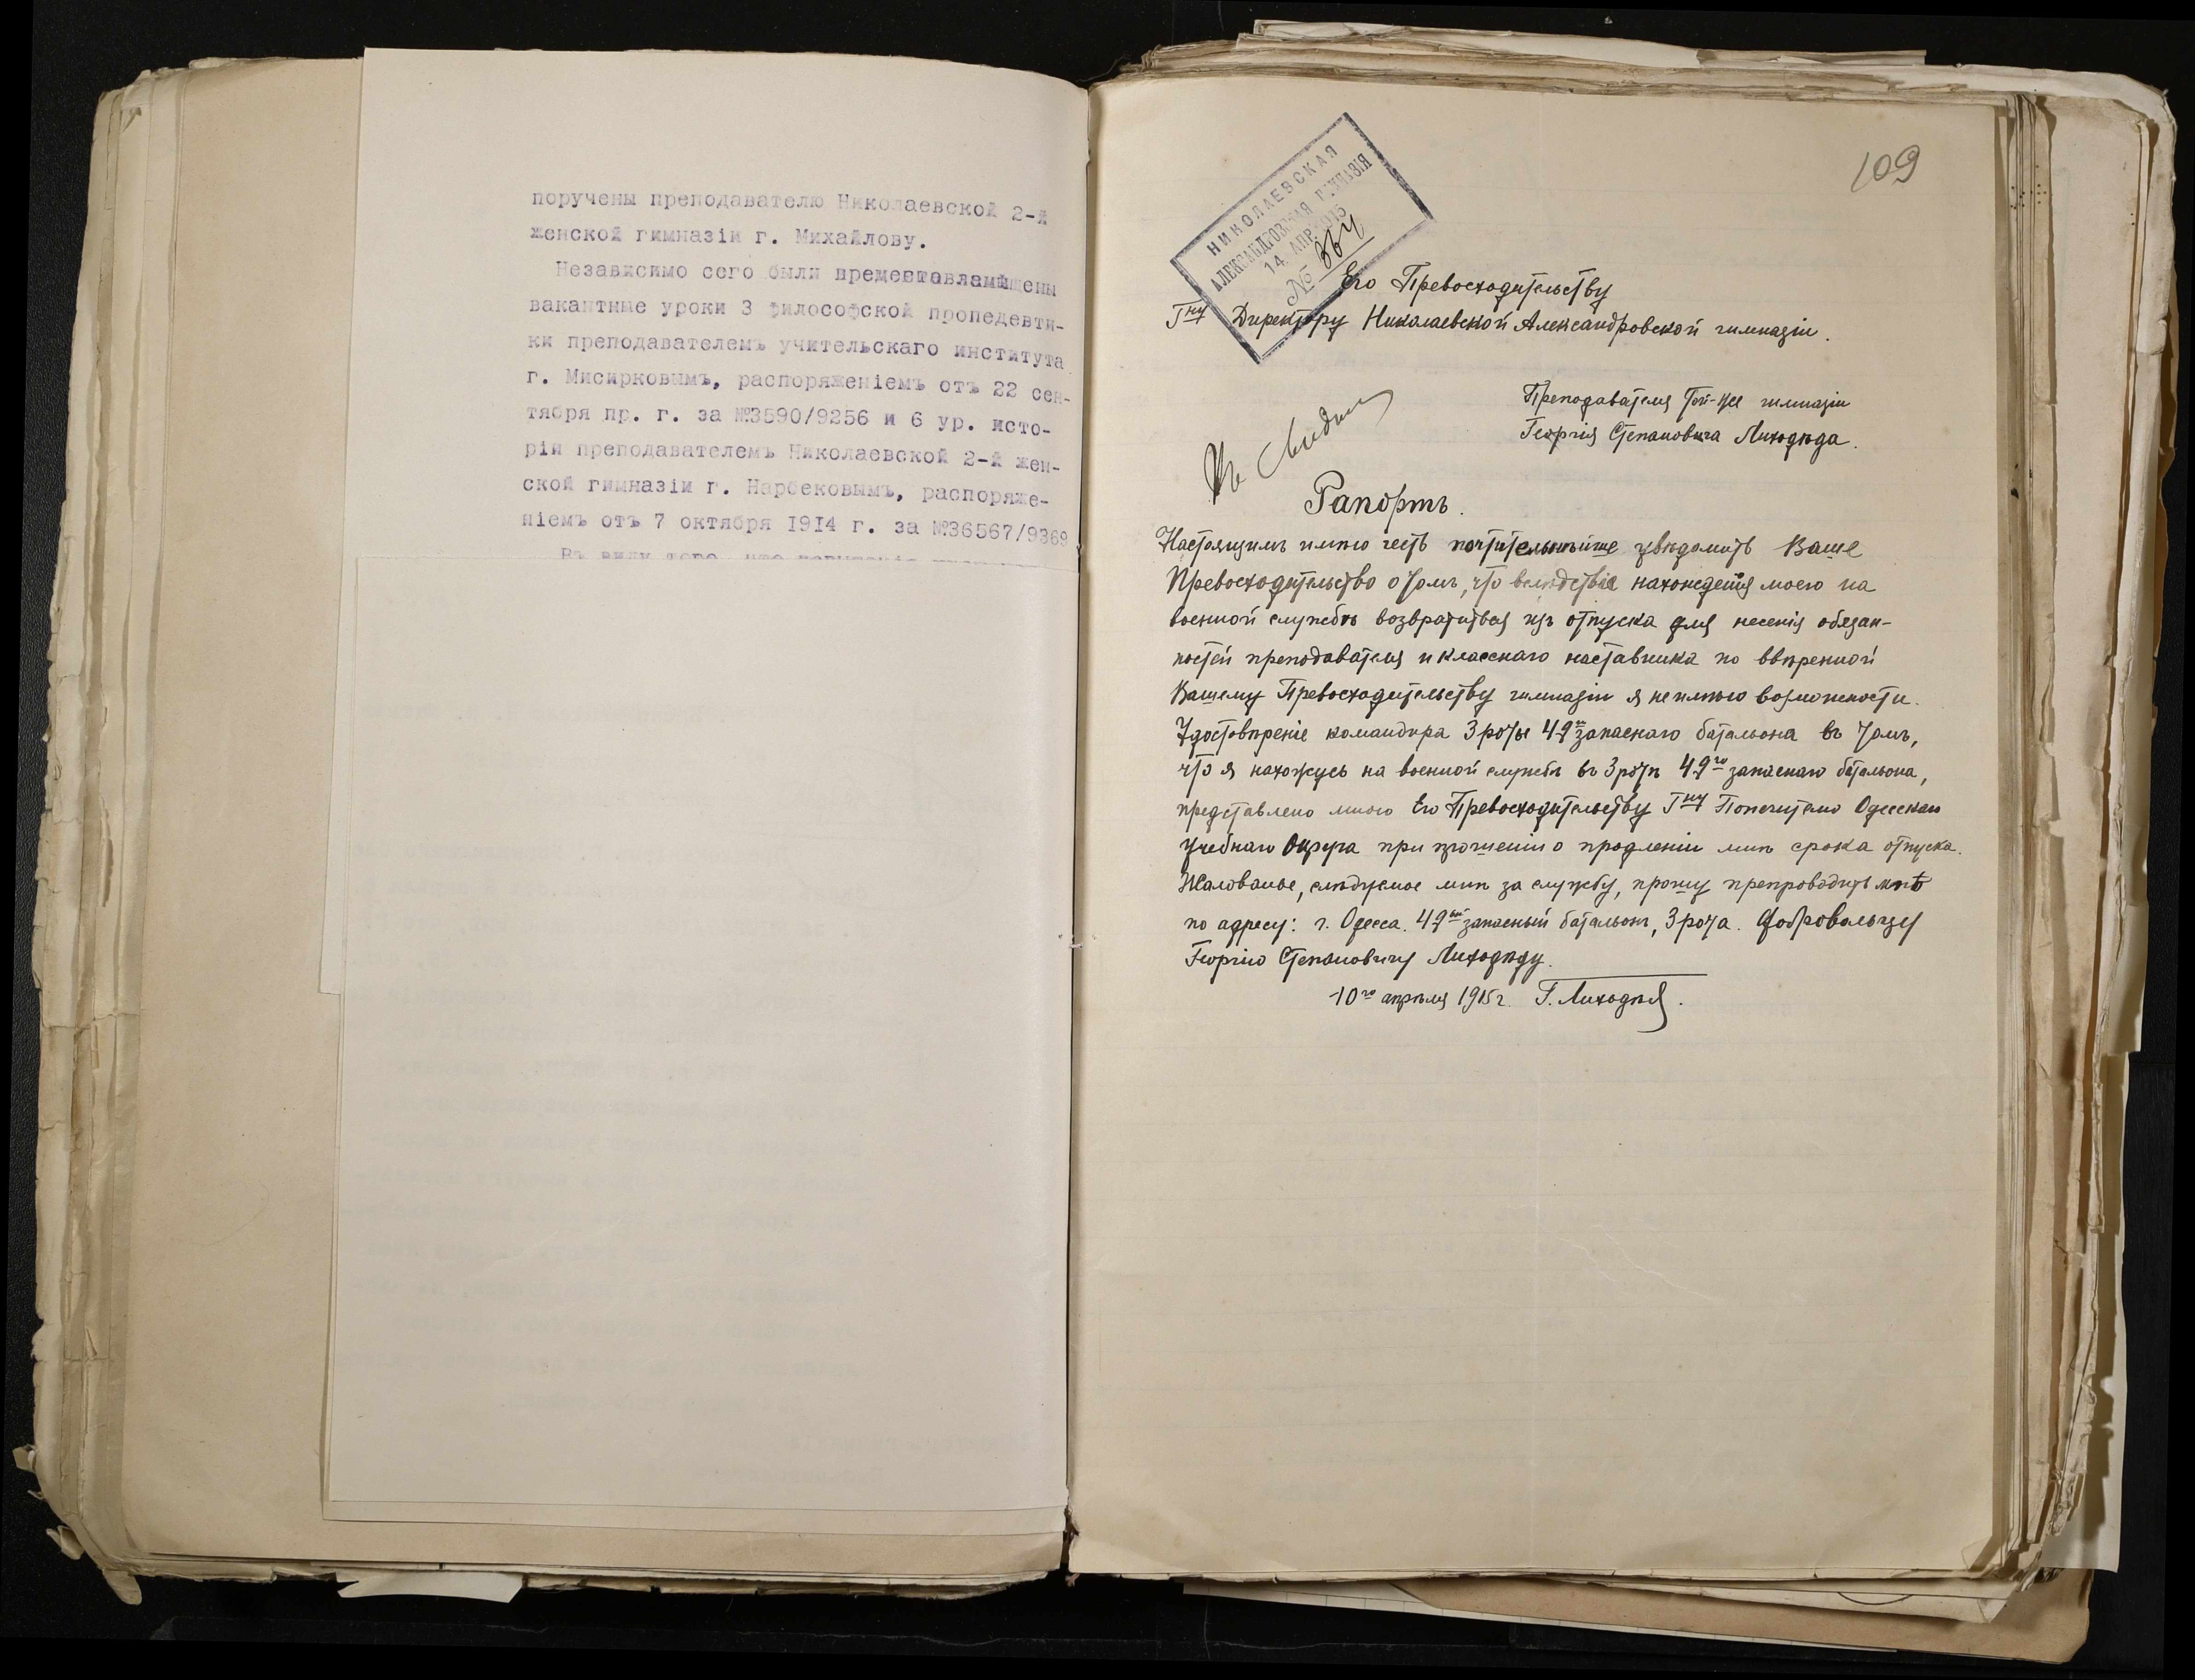 поручены преподавателю Николаевской 2-й
женской гимназіи г. Михайлову.
Независимо сего были
вакантные уроки 3 философской пропедевти-
ки преподавателемъ учительскаго института
г. Мисирковымъ, распоряженіемъ отъ 22 сен-
тября пр. г. за №3590/9256 и 6 ур. исто-
ріи преподавателемъ Николаевской 2-й жен-
ской гимназіи г. Нарбековымъ, распоряже-
ніемъ отъ 7 октября 1914 г. за №36567/9369
Въ виду того, что
109
НИКОЛАЕВСКАЯ
АЛЕКСАНДРОВСКАЯ ГИМНАЗІЯ
14. АПР. 1915
№ 364
Его Превосходительству
Гну Директору Николаевской Александровской гимназіи.
Преподавателя той-же гимназіи
Георгія Степановича Лиходѣда.
Къ
Рапортъ.
Настоящимъ имѣю честь почтительнѣйше увѣдомить Ваше
Превосходительство о томъ, что вслѣдствіе нахожденія моего на
военной службѣ возвратиться изъ отпуска для несенія обязан-
ностей преподавателя и класснаго наставника по ввѣренной
Вашему Превосходительству гимназіи я не имѣю возможности.
Удостовѣреніе командира 3 роты 49го запаснаго батальона въ томъ,
что я нахожусь на военной службѣ въ 3 ротѣ 49го запаснаго батальона,
представлено мною Его Превосходительству Гну Попечителю Одесскаго
Учебнаго Округа при прошеніи о продленіи мнѣ срока отпуска.
Жалованье, слѣдуемое мнѣ за службу, прошу препроводить мнѣ
по адресу: г. Одесса. 49ый запасный батальонъ, 3 рота. Добровольцу
Георгію Степановичу Лиходѣду.
10го апрѣля 1915 г. Г. Лиходѣд.